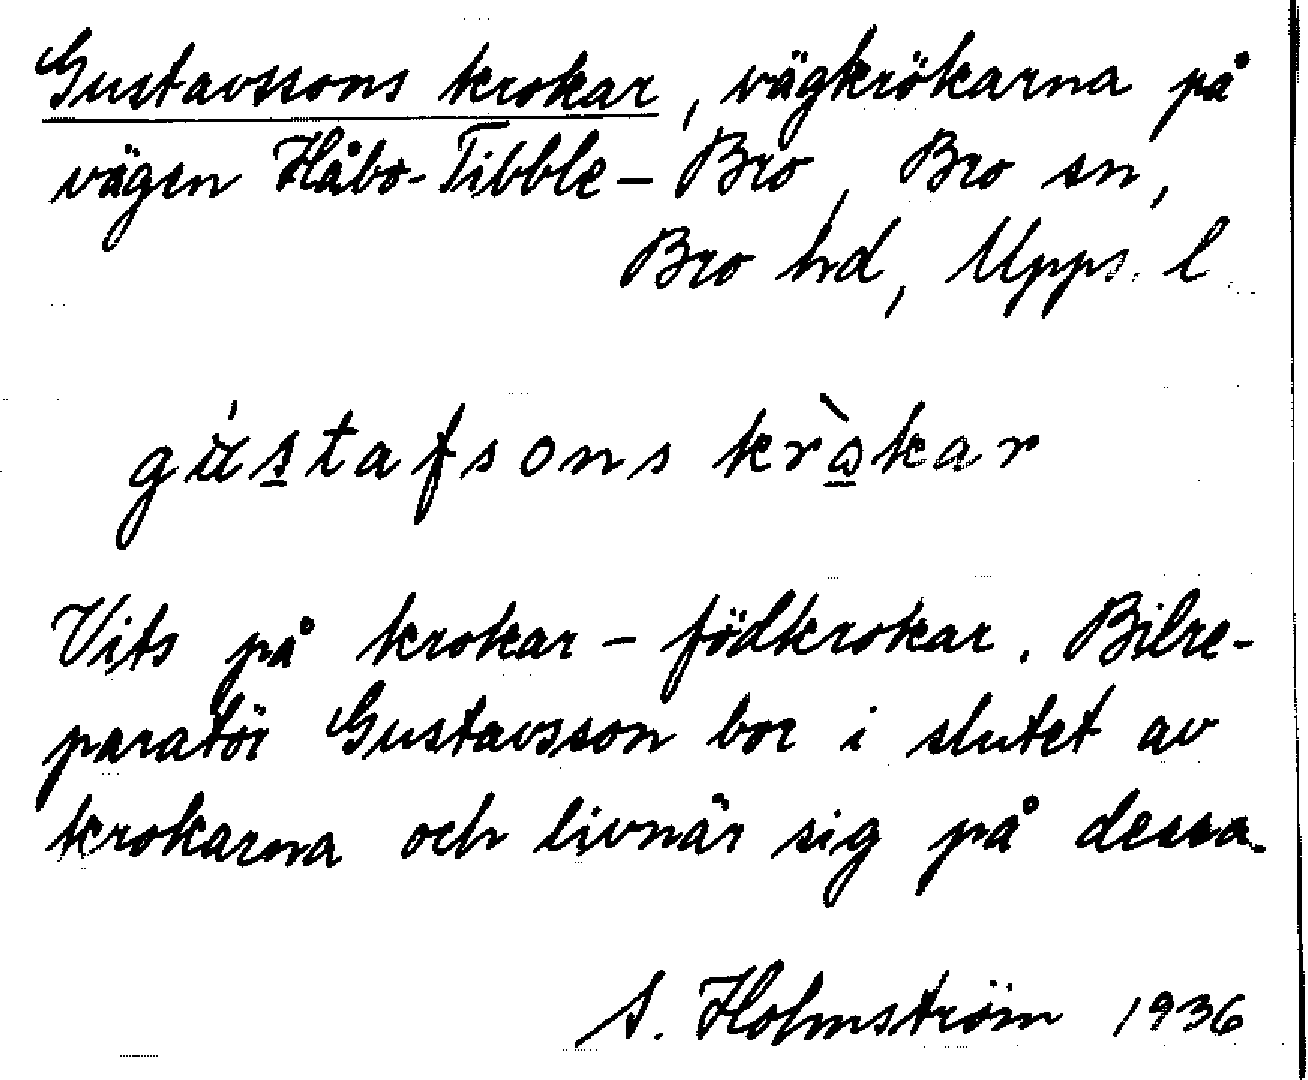 Gustavssons krokar, vägkrökarna på
vägen Håbo-Tibble – Bro, Bro sn,
Bro hd, Upps. l
gústafsons kròkar
Vits på krokar – födkrokar. Bilre-
paratör Gustavsson bor i slutet av
krokarna och livnär sig på dessa.
A. Holmström 1936